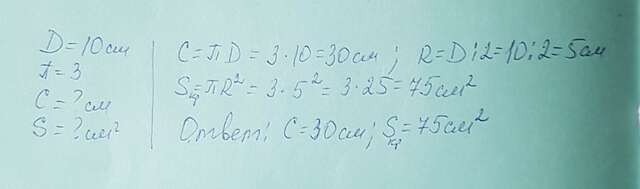 D=10см
π=3
C=?см
S=?см²
C=πD=3·10=30см; R=D:2=10:2=5см
Sкр=πR²=3·5²=3·25=75см²
Ответ: C=30см; Sкр=75см²